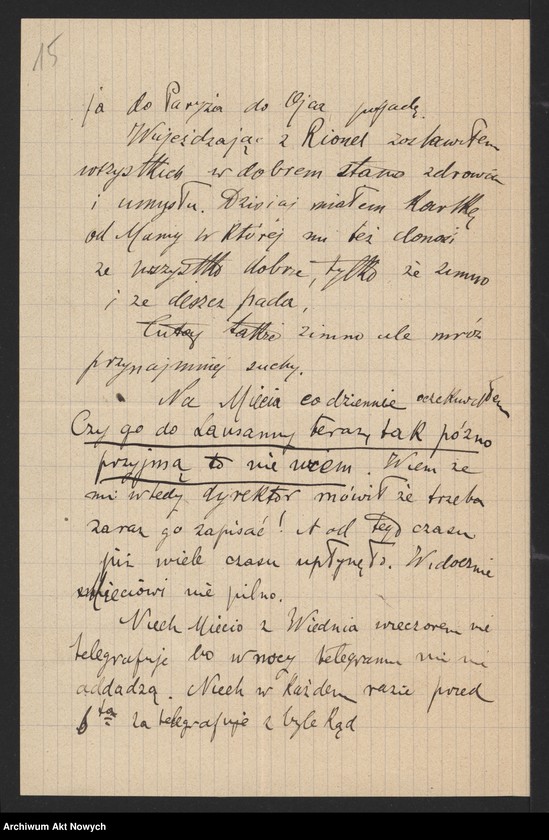 15
ja do Paryża do Ojca pojadę.
Wyjeżdzając z Riond zostawiłem
wszystkich w dobrem stanie zdrowia
i umysłu. Dzisiaj miałem kartkę
od Mamy w której mi też donosi
że wszystko dobrze, tylko że zimno
i że deszcz pada,
Tutaj także zimno ale mróz
przynajmniej suchy.
Na Miecia codziennie oczekiwałem
Czy go do Lausanny teraz tak późno
przyjmą to nie wiem. Wiem że
mi wtedy dyrektor mówił że trzeba
zaraz go zapisać! A od tego czasu
już wiele czasu upłynęło. Widocznie
Mieciowi nie pilno.
Niech Miecio z Wiednia wieczorem nie
telegrafuje bo w nocy telegramu mi nie
oddadzą. Niech w każdem razie przed
6tą zatelegrafuje z byle kąd
Archiwum Akt Nowych